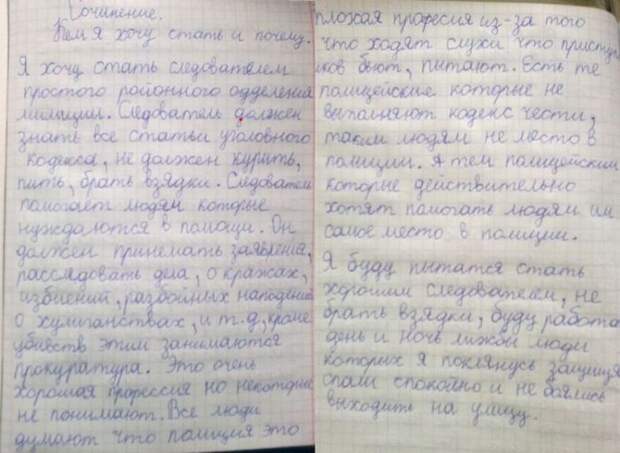 Сочинение.
Кем я хочу стать и почему.
Я хочу стать следователем
простого районного одделения
милиции. Следователь должен
знать все статьи уголовного
кодекса, не должен курить,
пить, брать взядки. Следователь
помогает людям которые
нуждаются в помощи. Он
должен принемать заявления,
расслядовать дела, о кражах,
избиений, разбойных нападений
о хулиганствах, и т.д, кроме
убивств этим занимаются
прокуратура. Это очень
хорошая професcия но некоторые
не понимают. Все люди
думают что полиция это
плохая професия из-за того
что ходят слухи что приступ
иков бьют, пытают. Есть те
полицейские которые не
выполняют кодекс чести,
таким людям не место в
полиции. А тем полицейским
которые действительно
хотят помогать людям им
самое место в полиции.
Я буду пытатся стать
хорошим следователем, не
брать взядки, буду работа
день и ночь лижбы люди
которых я поклянусь защища
спали спокойно и не боялись
выходить на улицу.